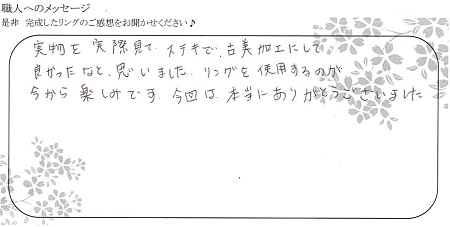 職人へのメッセージ
是非 完成したリングのご感想をお聞かせください♪
実物を実際見て、ステキで、古美加工にして
良かったなと、思いました。リングを使用するのが
今から楽しみです。今回は、本当にありがとうございました